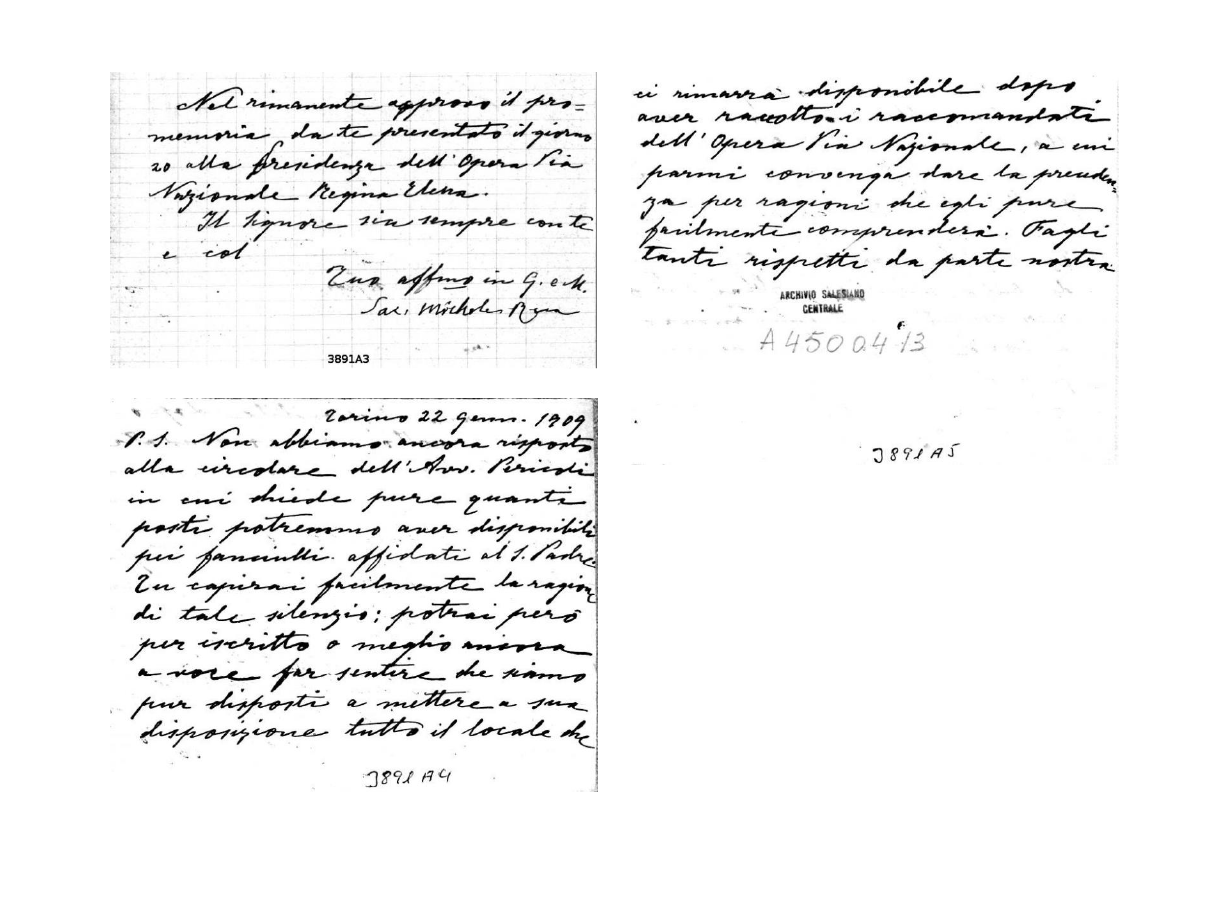 Nel rimanente approvo il pro=
memoria da te presentato il giorno
20 alla presidenza dell'Opera Pia
Nazionale Regina Elena.
Il Signore sia sempre con te
e col
Tuo affmo in G. e M.
Sac. Michele Rua
3891A3
Torino 22 Genn. 1909
P. S. Non abbiamo ancora risposto
alla circolare dell'Avv. Pericoli
in cui chiede pure quanti
posti potremmo aver disponibili
pei fanciulli affidati al S. Padre.
Tu capirai facilmente la ragione
di tale silenzio; potrai però
per iscritto o meglio ancora
a voce far sentire che siamo
pur disposti a mettere a sua
disposizione tutto il locale che
3891A4
ci rimarrà disponibile dopo
aver raccolto i raccomandati
dell'Opera Pia Nazionale, a cui
parmi convenga dare la preceden
za per ragioni che egli pure
facilmente comprenderà. Fagli
tanti rispetti da parte nostra
ARCHIVIO SALESIANO
CENTRALE
A4500413
3891A5